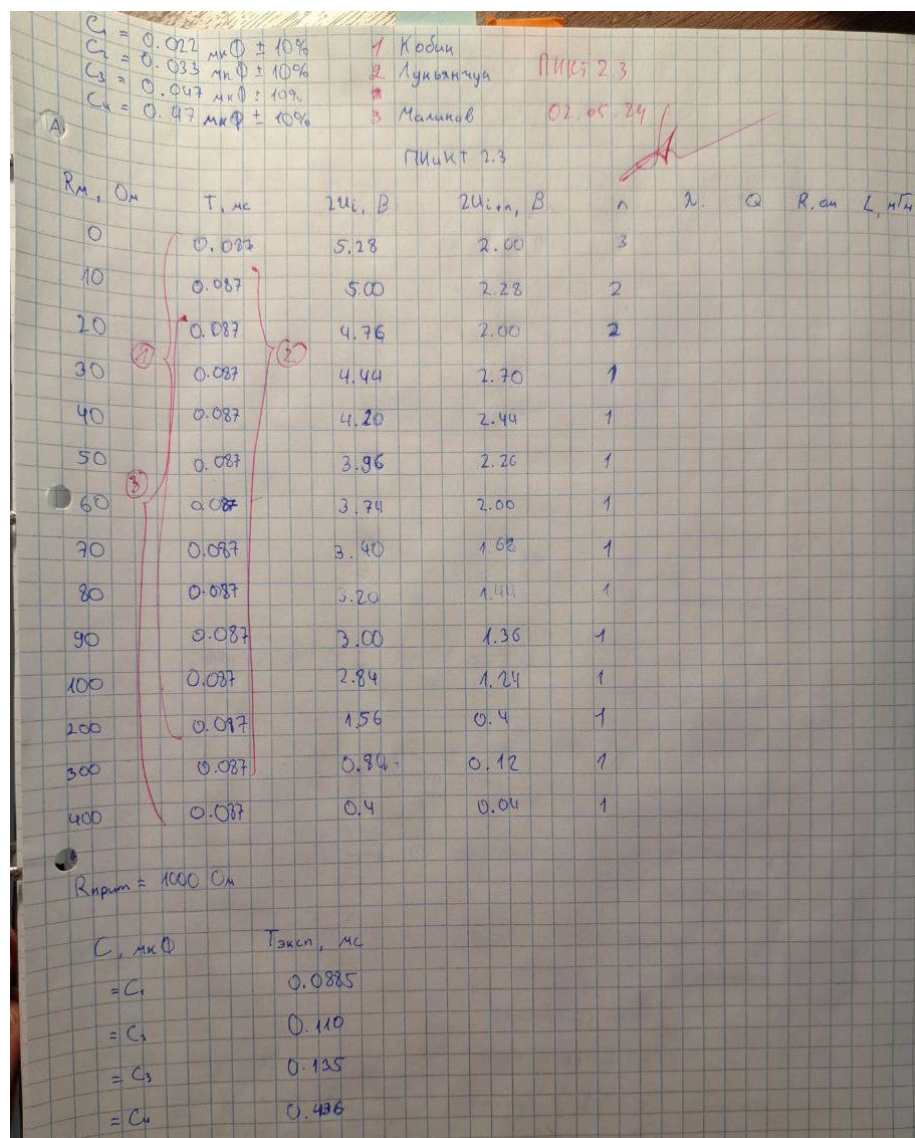 C₁ = 0.022 мкФ ± 10% 1 Кобик
C₂ = 0.033 мкФ ± 10% 2 Лукьянчук ПИКТ 2 3
C₃ = 0.047 мкФ ± 10%
C₄ = 0.47 мкФ ± 10% 3 Маликов 02.05.24
A
ПИиКТ 2.3
Rм, Ом T, мс 2Ui, В 2Ui+n, В n λ. Q R, ом L, мГн
0 0.087 5.28 2.00 3
10 0.087 5.00 2.28 2
20 0.087 4.76 2.00 2
30 0.087 4.44 2.70 1
40 0.087 4.20 2.44 1
50 0.087 3.96 2.26 1
60 0.087 3.74 2.00 1
70 0.087 3.40 1.62 1
80 0.087 3.20 1.44 1
90 0.087 3.00 1.36 1
100 0.087 2.84 1.24 1
200 0.087 1.56 0.4 1
300 0.087 0.84 0.12 1
400 0.087 0.4 0.04 1
1
2
3
Rкрит = 1000 Ом
C, мкФ Tэксп, мс
= C₁ 0.0885
= C₂ 0.110
= C₃ 0.135
= C₄ 0.436